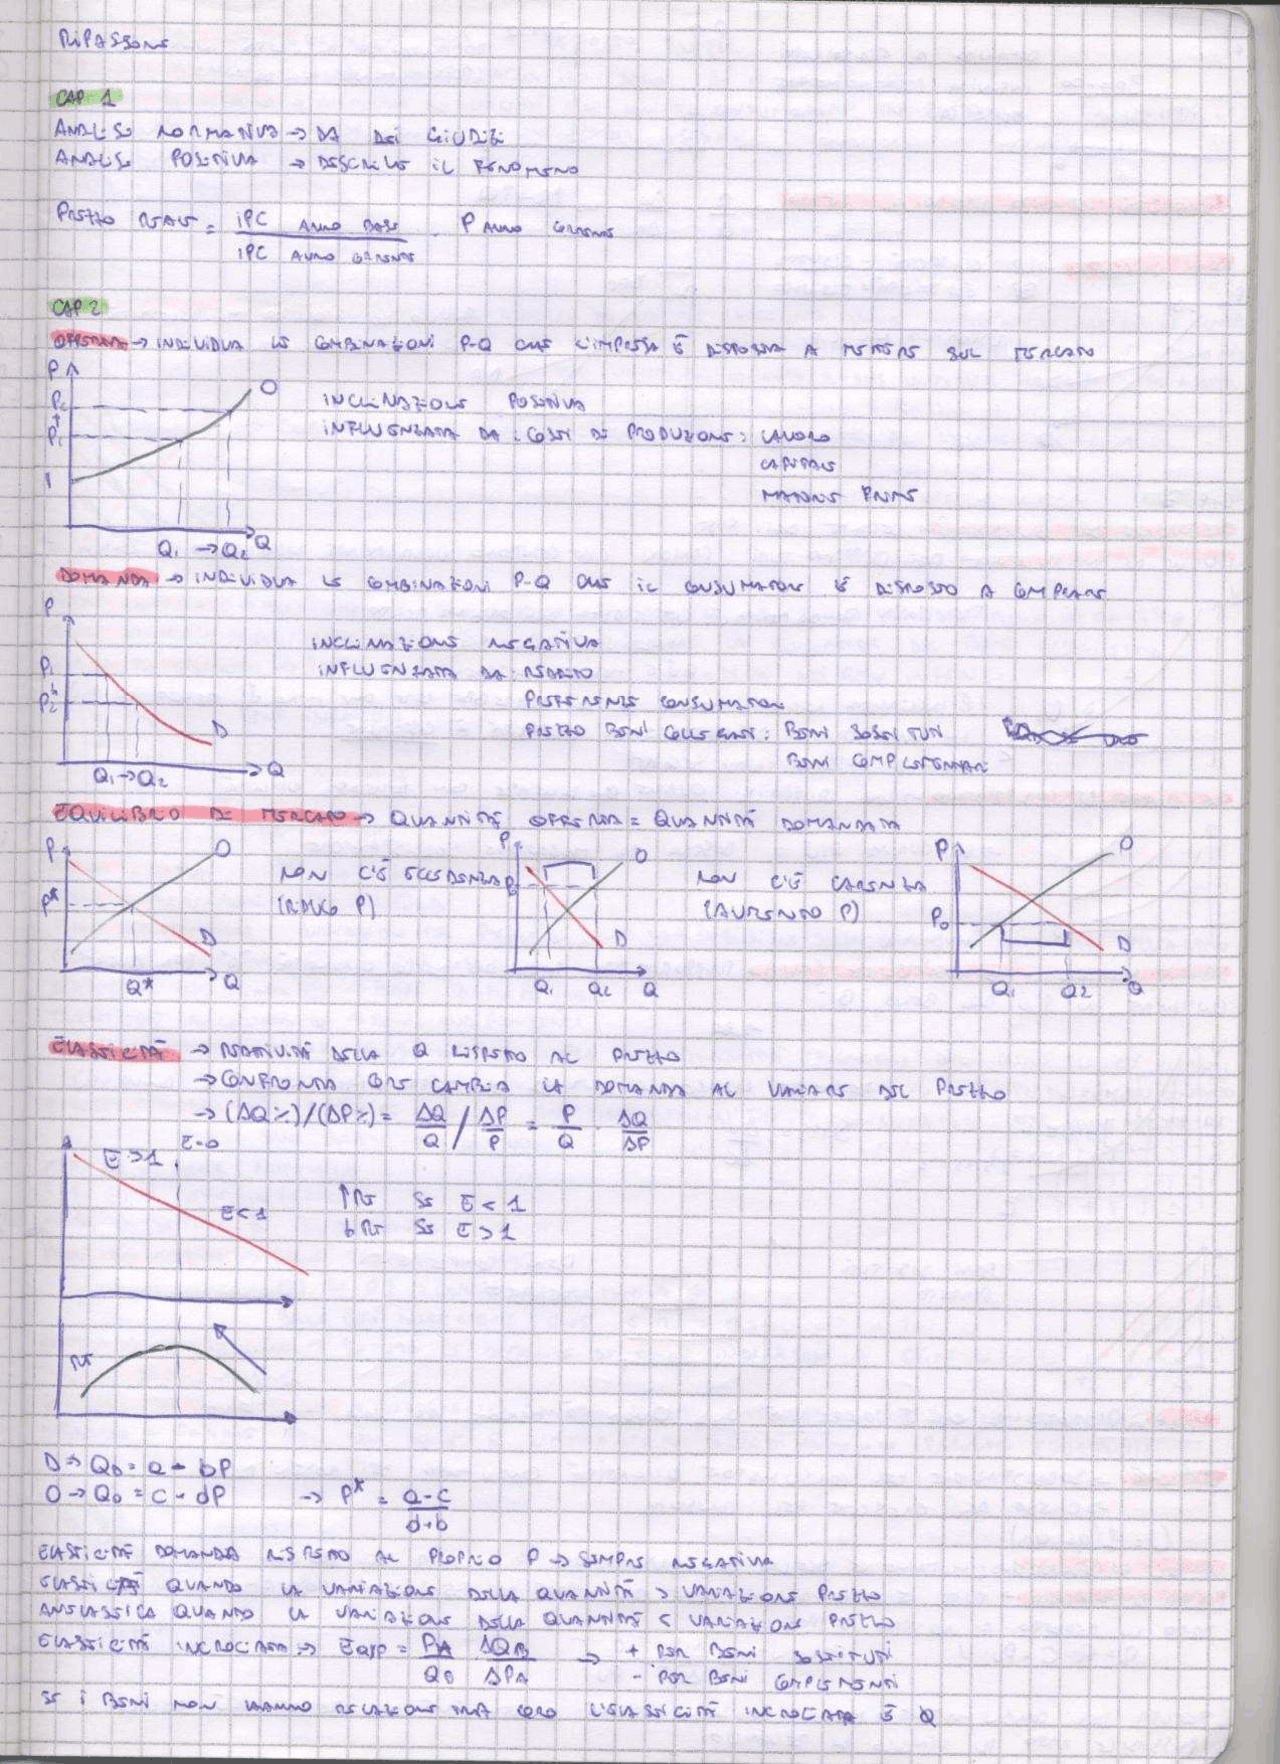 RIPASSONE
CAP 1
ANALISI NORMATIVA → DA DEI GIUDIZI
ANALISI POSITIVA → DESCRIVE IL FENOMENO
PREZZO REALE = IPC ANNO BASE / IPC ANNO CORRENTE · P ANNO CORRENTE
CAP 2
OFFERTA → INDIVIDUA LE COMBINAZIONI P-Q CHE L'IMPRESA È DISPOSTA A METTERE SUL MERCATO
P
P2
P1
O
Q1 → Q2 Q
INCLINAZIONE POSITIVA
INFLUENZATA DA: COSTI DI PRODUZIONE: LAVORO
CAPITALE
MATERIE PRIME
DOMANDA → INDIVIDUA LE COMBINAZIONI P-Q CHE IL CONSUMATORE È DISPOSTO A COMPRARE
P
P1
P2
D
Q1 → Q2 Q
INCLINAZIONE NEGATIVA
INFLUENZATA DA: REDDITO
PREFERENZE CONSUMATORI
PREZZO BENI COLLEGATI: BENI SOSTITUTI
BENI COMPLEMENTARI
EQUILIBRIO DI MERCATO → QUANTITÀ OFFERTA = QUANTITÀ DOMANDATA
P O
P*
D
Q* Q
NON C'È ECCEDENZA
(RIDUCO P)
P O
D
Q1 Q2 Q
NON C'È CARENZA
(AUMENTO P)
P O
P0
D
Q1 Q2 Q
ELASTICITÀ → REATTIVITÀ DELLA Q RISPETTO AL PREZZO
→ CONFRONTA COME CAMBIA LA DOMANDA AL VARIARE DEL PREZZO
→ (ΔQ%)/(ΔP%) = ΔQ/Q / ΔP/P = P/Q ΔQ/ΔP
E>1 E=0
E<1
↑RT SE E<1
↓RT SE E>1
RT
D → QD = a - bP
O → QO = c - dP → P* = a-c / d+b
ELASTICITÀ DOMANDA RISPETTO AL PROPRIO P → SEMPRE NEGATIVA
ELASTICITÀ QUANDO LA VARIAZIONE DELLA QUANTITÀ > VARIAZIONE PREZZO
ANELASTICA QUANDO LA VARIAZIONE DELLA QUANTITÀ < VARIAZIONE PREZZO
ELASTICITÀ INCROCIATA → = PA/QB ΔQB/ΔPA → + PER BENI SOSTITUTI
- PER BENI COMPLEMENTI
SE I BENI NON HANNO RELAZIONE TRA LORO L'ELASTICITÀ INCROCIATA È 0